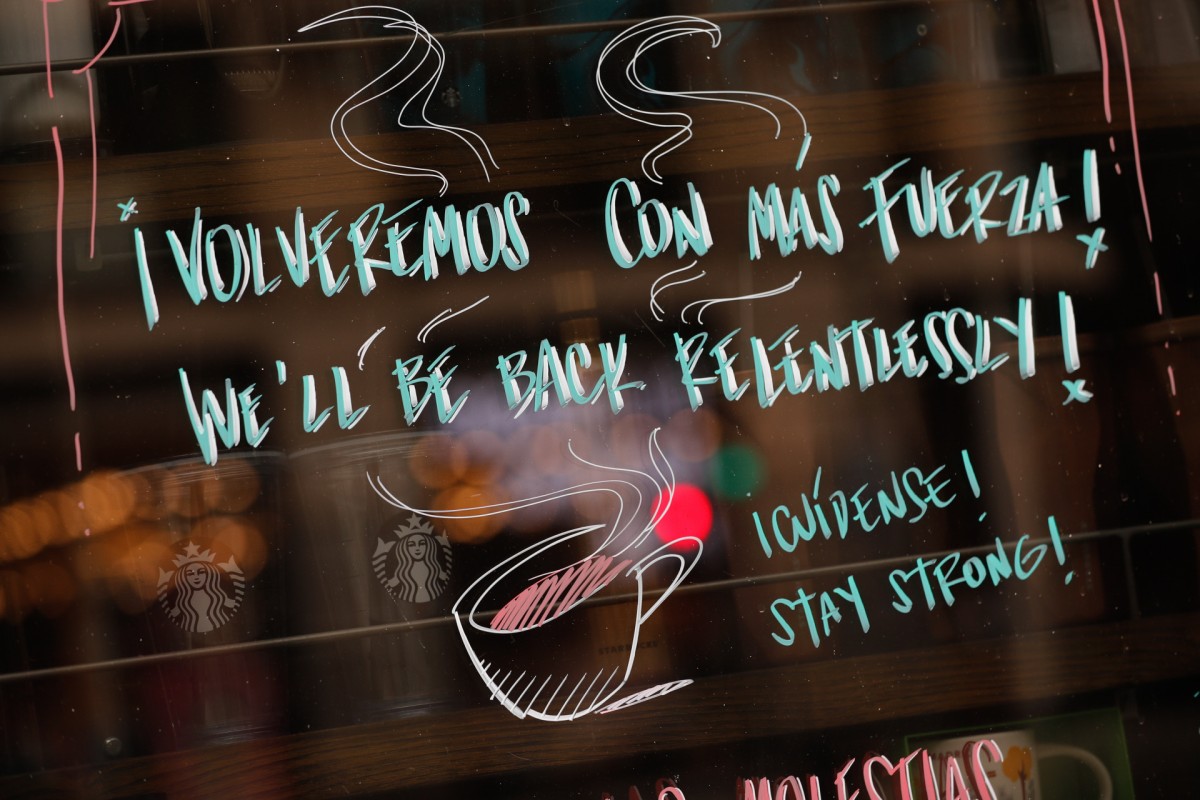 ¡VOLVEREMOS CON MÁS FUERZA!
WE'LL BE BACK RELENTLESSLY!
¡CUÍDENSE!
STAY STRONG!
STARBUCKS
MOLESTIAS